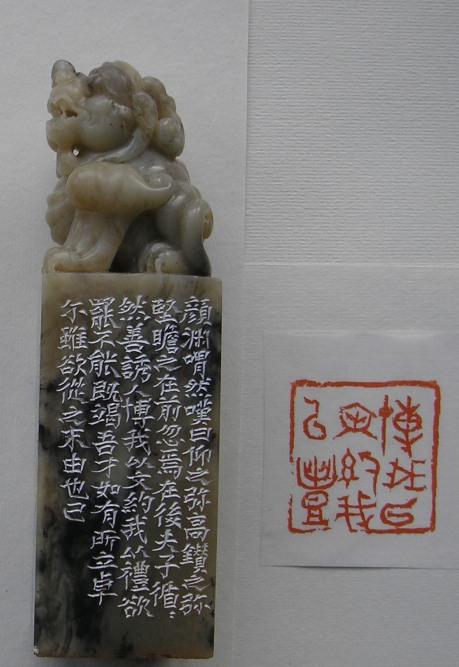 顏渊喟然嘆曰仰之弥高鑽之弥
堅瞻之在前忽焉在後夫子循〻
然善誘人博我以文約我以禮欲
罷不能既竭吾才如有所立卓
尔雖欲從之末由也已
博我㠯
文約我
㠯豊